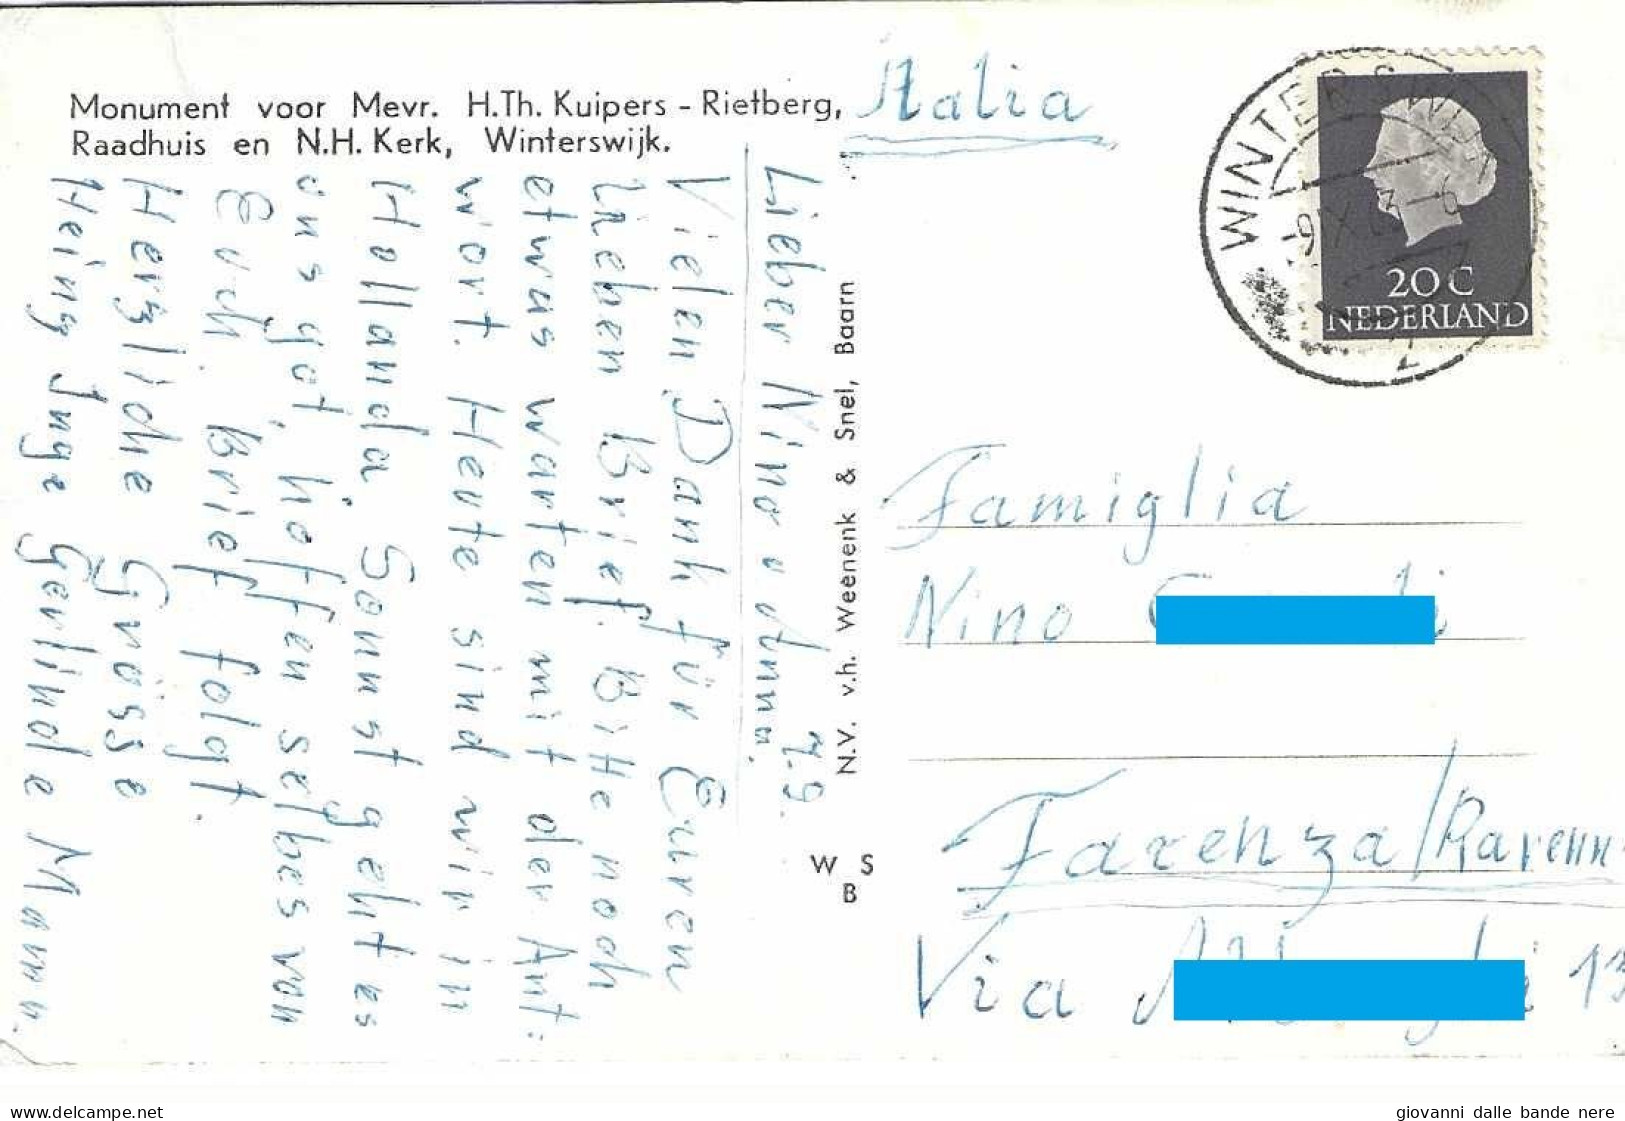 Monument voor Mevr. H.Th. Kuipers - Rietberg,
Raadhuis en N.H. Kerk, Winterswijk.
7.9.
Lieber Nino u Anna.
Vielen Dank für Euren
lieben Brief. Bitte noch
etwas warten mit der Ant:
wort. Heute sind wir in
Hollanda. Sonst geht es
uns gut, hoffen selbes von
Euch. Brief folgt.
Herzliche Grüsse
Heinz Inge Gerlinde Mamm.
N.V. v.h. Weenenk & Snel, Baarn
W S
B
Italia
WINTERSWIJK
20 C
NEDERLAND
Famiglia
Nino
Faxenza/Ravenn
Via 13
delcampe.net
giovanni dalle bande nere